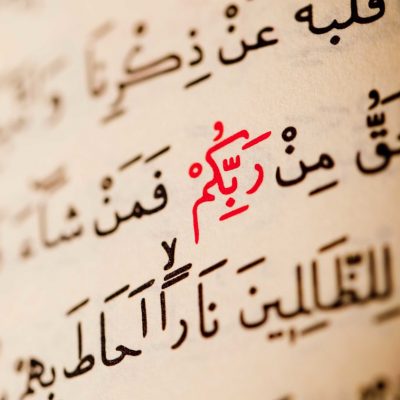 قَلْبَهُ عَنْ ذِكْرِنَا
مِنْ رَبِّكُمْ فَمَنْ شَآءَ
لِلظَّالِمِينَ نَارًا اَحَاطَ بِهِمْ